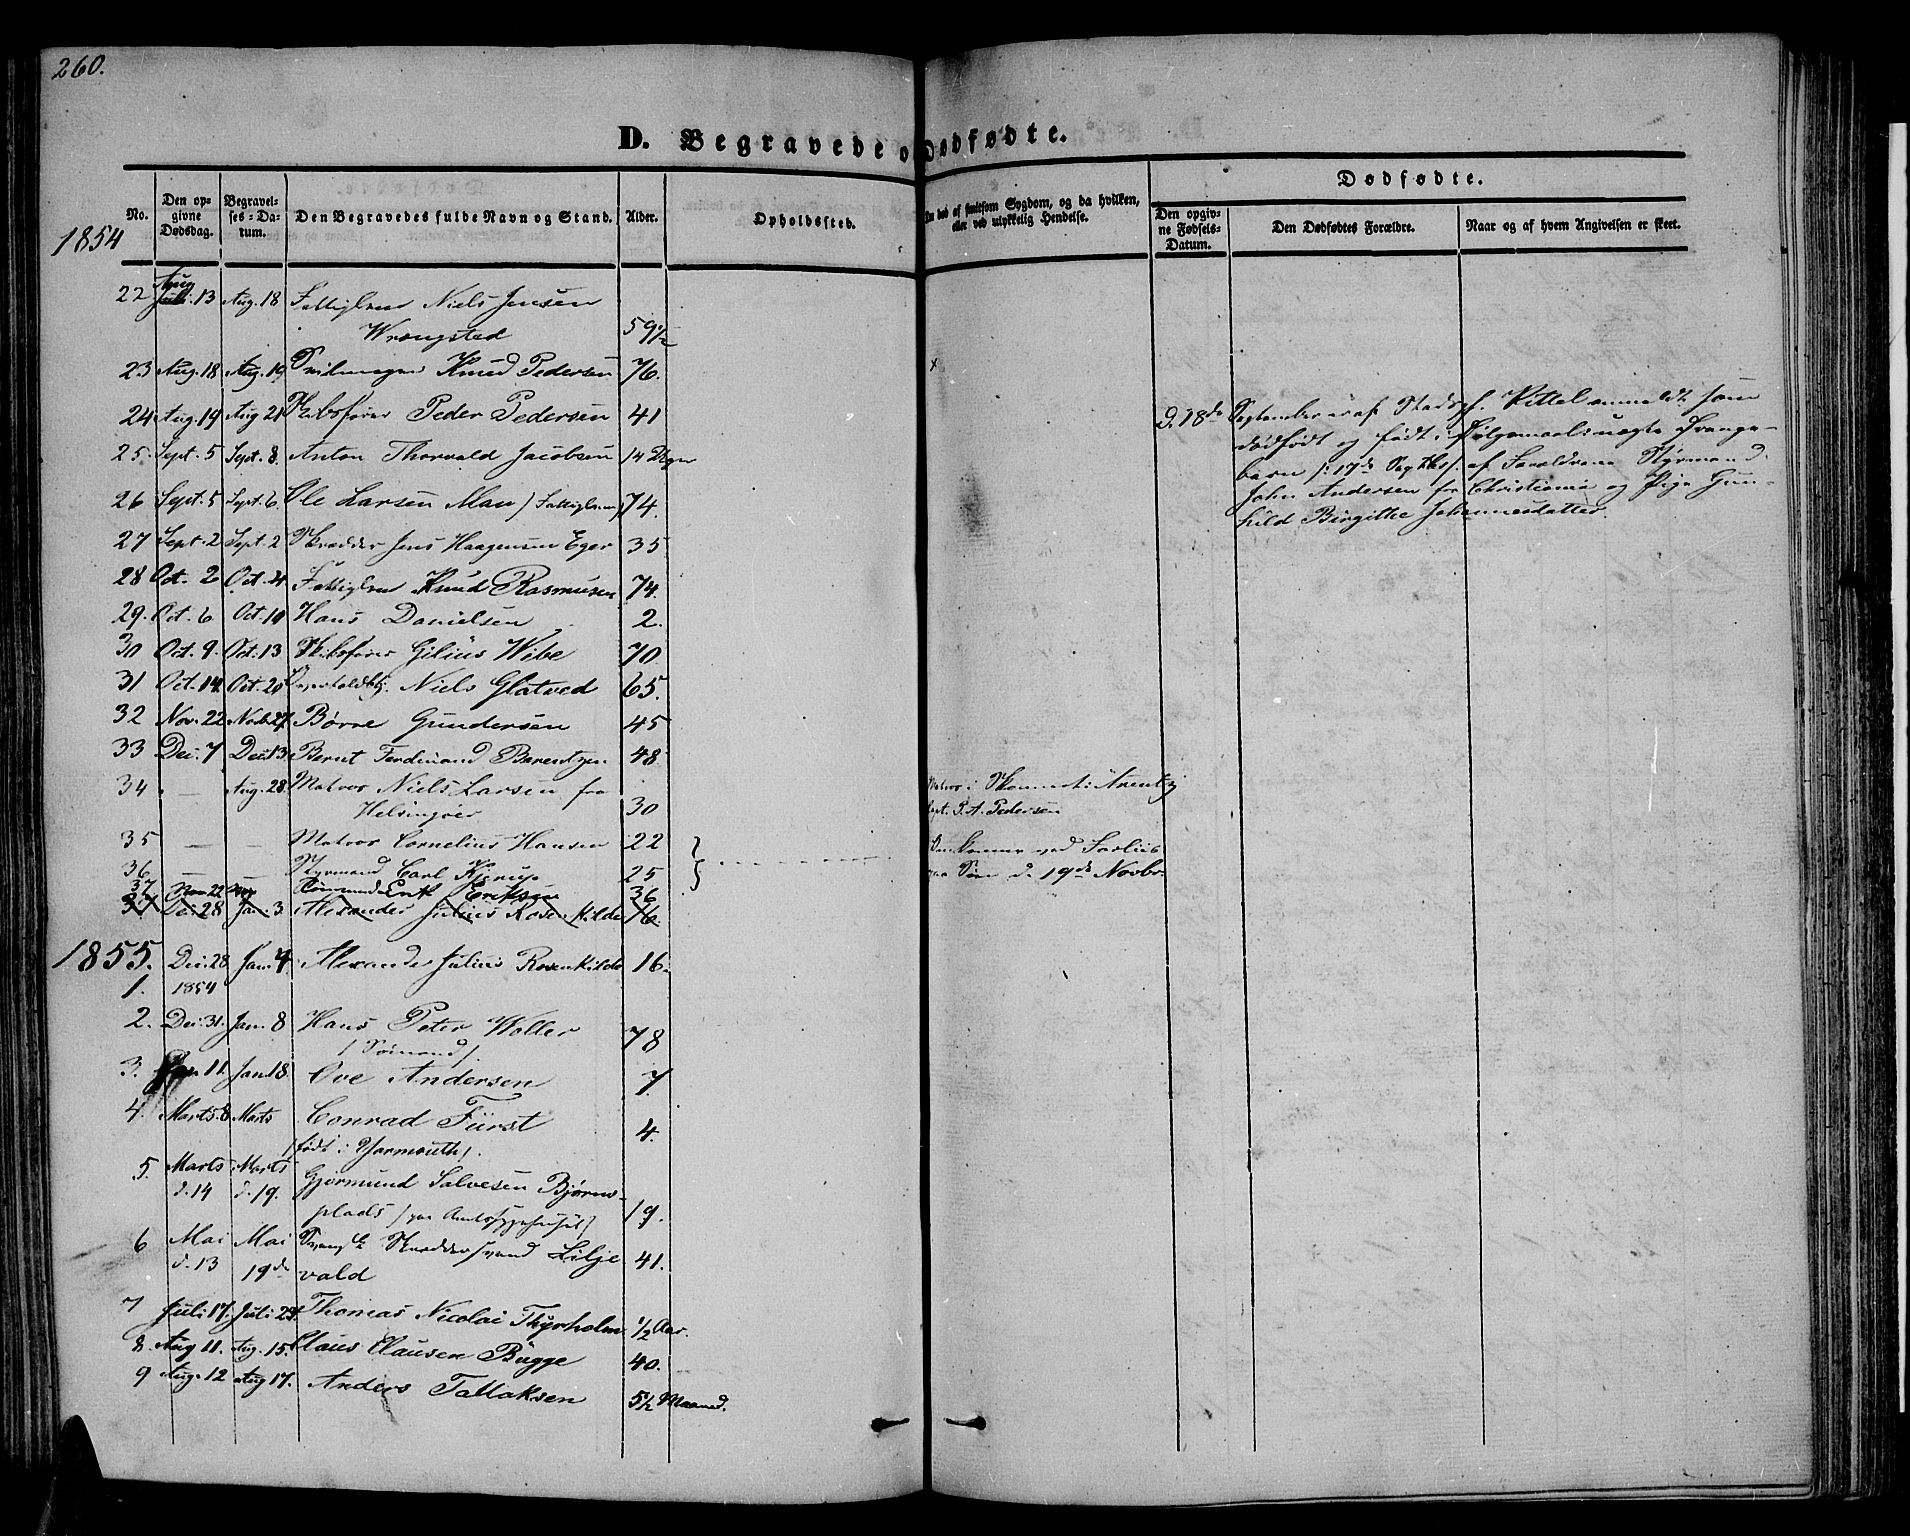 260.
D. Begravede o Dødfødte.
No.
Den opgivne Dødsdag.
Begravelses-Datum.
Den Begravedes fulde Navn og Stand.
Alder.
Opholdssted.
død af smitsom Sygdom, og da hvilken, eller ved ulykkelig Hendelse.
Dødfødte.
Den opgivne Fødsels-Datum.
Den Dødfødtes Forældre.
Naar og af hvem Angivelsen er skeet.
1854
22 Aug 13 Aug. 18 Fattiglem Niels Jensen
Wrængsted 59½
23 Aug. 18 Aug. 19 Knud Pedersen 76.
24 Aug. 19 Aug 21 Skibsfører Peder Pedersen 41
25. Sept. 5 Sept. 8. Anton Thorvald Jacobsen 14 Dage
26 Sept. 5 Sept. 6. Ole Larsen Mau / Fattiglem / 74.
27 Sept. 2 Sept. 2 Skrædder Jens Haagensen Eger 35
28 Oct. 2 Oct. 4 Fattiglem Knud Rasmusen 74.
29. Oct. 6 Oct. 10 Hans Danielsen 2.
30 Oct. 9. Oct. 13 Skibsfører Gilius Wibe 70
31 Oct. 14 Oct. 20 Niels Glatved 65.
32 Nov. 22 Novb 27 Børre Gundersen 45
33 Dec. 7 Dec. 13 Bernt Ferdinand Barentzen 48
34 — Aug. 28. Matros Niels Larsen fra
Helsingøer 30
35 — — Matros Cornelius Hansen 22
36 — — Styrmand Carl Kjerup 25
37 Nov 22 Erik Eriksen 36
37. Dec. 28 Jan. 3 Alexander Julius Rosenkilde 16.
1855. Dec. 28 Jan. 4 Alexander Julius Rosenkilde 16.
1. 1854
2. Dec. 31. Jan. 8 Hans Peter Woller 78
/ Sømand /.
3. Jan 11. Jan. 18 Ove Andersen 7.
4. Marts 8 Marts Conrad Fürst 4.
/ født i Yarmouth /.
5. Marts Marts Gjermund Salvesen Bjørns-
d. 14 d. 19. plads / paa Amtssygehuset / 19.
6 Mai Mai Svensk Skræddersvend Lilje 41.
d. 13 19de vald
7 Juli 17. Juli 24 Thomas Nicolai Thyrholm ½ Aar.
8 Aug 11. Aug. 15. Claus Clausen Bugge 40.
9 Aug. 12 Aug 17. Anders Tallaksen 5½ Maaned.
x
Matros i Skonnert
Capt. P. A. Pedersen
Omkomne ved Forliis
paa Søen d 19de Novbr.
d. 18de September er af Kittel anmeldt som
dødfødt og født i Dølgsmaal uægte Drenge-
barn / 17de Septbr /. af Forældrene Styrmand
John Andersen fra Christiania og Pige Gun-
hild Birgithe Johannesdatter.